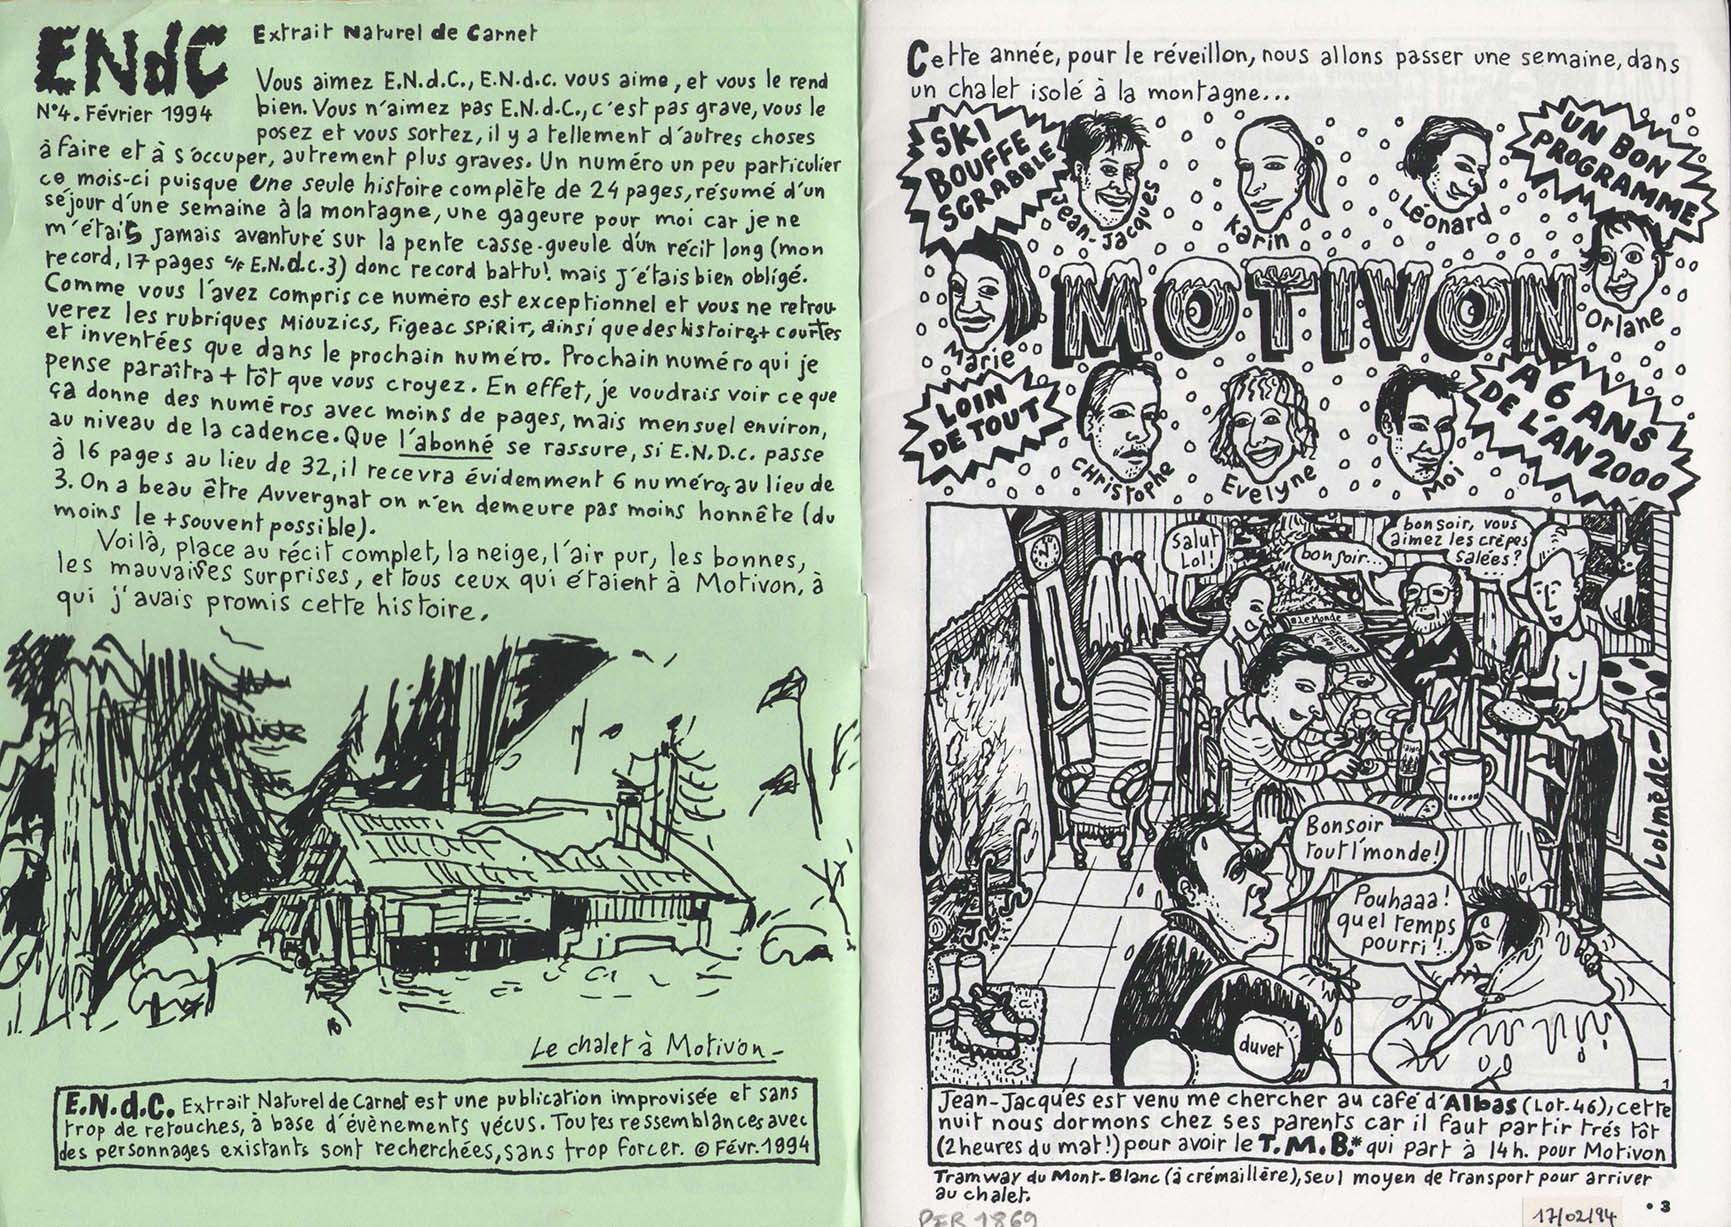 ENdC
Extrait Naturel de Carnet
N°4. Février 1994
Vous aimez E.N.d.C., E.N.d.c. vous aime, et vous le rend
bien. Vous n'aimez pas E.N.d.C., c'est pas grave, vous le
posez et vous sortez, il y a tellement d'autres choses
à faire et à s'occuper, autrement plus graves. Un numéro un peu particulier
ce mois-ci puisque une seule histoire complète de 24 pages, résumé d'un
séjour d'une semaine à la montagne, une gageure pour moi car je ne
m'étais jamais aventuré sur la pente casse-gueule d'un récit long (mon
record, 17 pages c/f E.N.d.c.3) donc record battu! mais j'étais bien obligé.
Comme vous l'avez compris ce numéro est exceptionnel et vous ne retrou-
verez les rubriques Miouzics, Figeac SPIRIT, ainsi que des histoires + courtes
et inventées que dans le prochain numéro. Prochain numéro qui je
pense paraîtra + tôt que vous croyez. En effet, je voudrais voir ce que
ça donne des numéros avec moins de pages, mais mensuel environ,
au niveau de la cadence. Que l'abonné se rassure, si E.N.D.c. passe
à 16 pages au lieu de 32, il recevra évidemment 6 numéros au lieu de
3. On a beau être Auvergnat on n'en demeure pas moins honnête (du
moins le + souvent possible).
Voilà, place au récit complet, la neige, l'air pur, les bonnes,
les mauvaises surprises, et tous ceux qui étaient à Motivon, à
qui j'avais promis cette histoire.
Le chalet à Motivon_
E.N.d.C. Extrait Naturel de Carnet est une publication improvisée et sans
trop de retouches, à base d'évènements vécus. Toutes ressemblances avec
des personnages existants sont recherchées, sans trop forcer. © Févr. 1994
Cette année, pour le réveillon, nous allons passer une semaine, dans
un chalet isolé à la montagne...
SKI
BOUFFE
SCRABBLE
Jean-Jacques
Karin
Léonard
UN BON
PROGRAMME
Marie
MOTIVON
Orlane
LOIN
DE TOUT
Christophe
Evelyne
Moi
A 6 ANS
DE L'AN 2000
Salut
Lol!
bonsoir...
bonsoir, vous
aimez les crèpes
salées?
Le Monde
Bonsoir
tout l'monde!
Pouhaaa!
quel temps
pourri!
duvet
Lolmède
1
Jean-Jacques est venu me chercher au café d'Albas (Lot-46), cette
nuit nous dormons chez ses parents car il faut partir trés tôt
(2 heures du mat!) pour avoir le T.M.B.* qui part à 14h. pour Motivon
Tramway du Mont-Blanc (à crémaillère), seul moyen de transport pour arriver
au chalet.
• 3
PER 1869
17/02/94